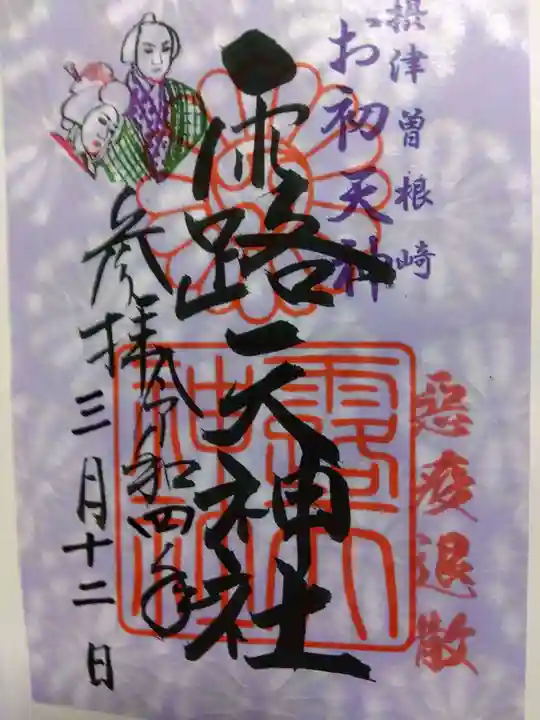 摂津曽根崎
お初天神
悪疫退散
露天神社
令和四年
参拝
三月十二日